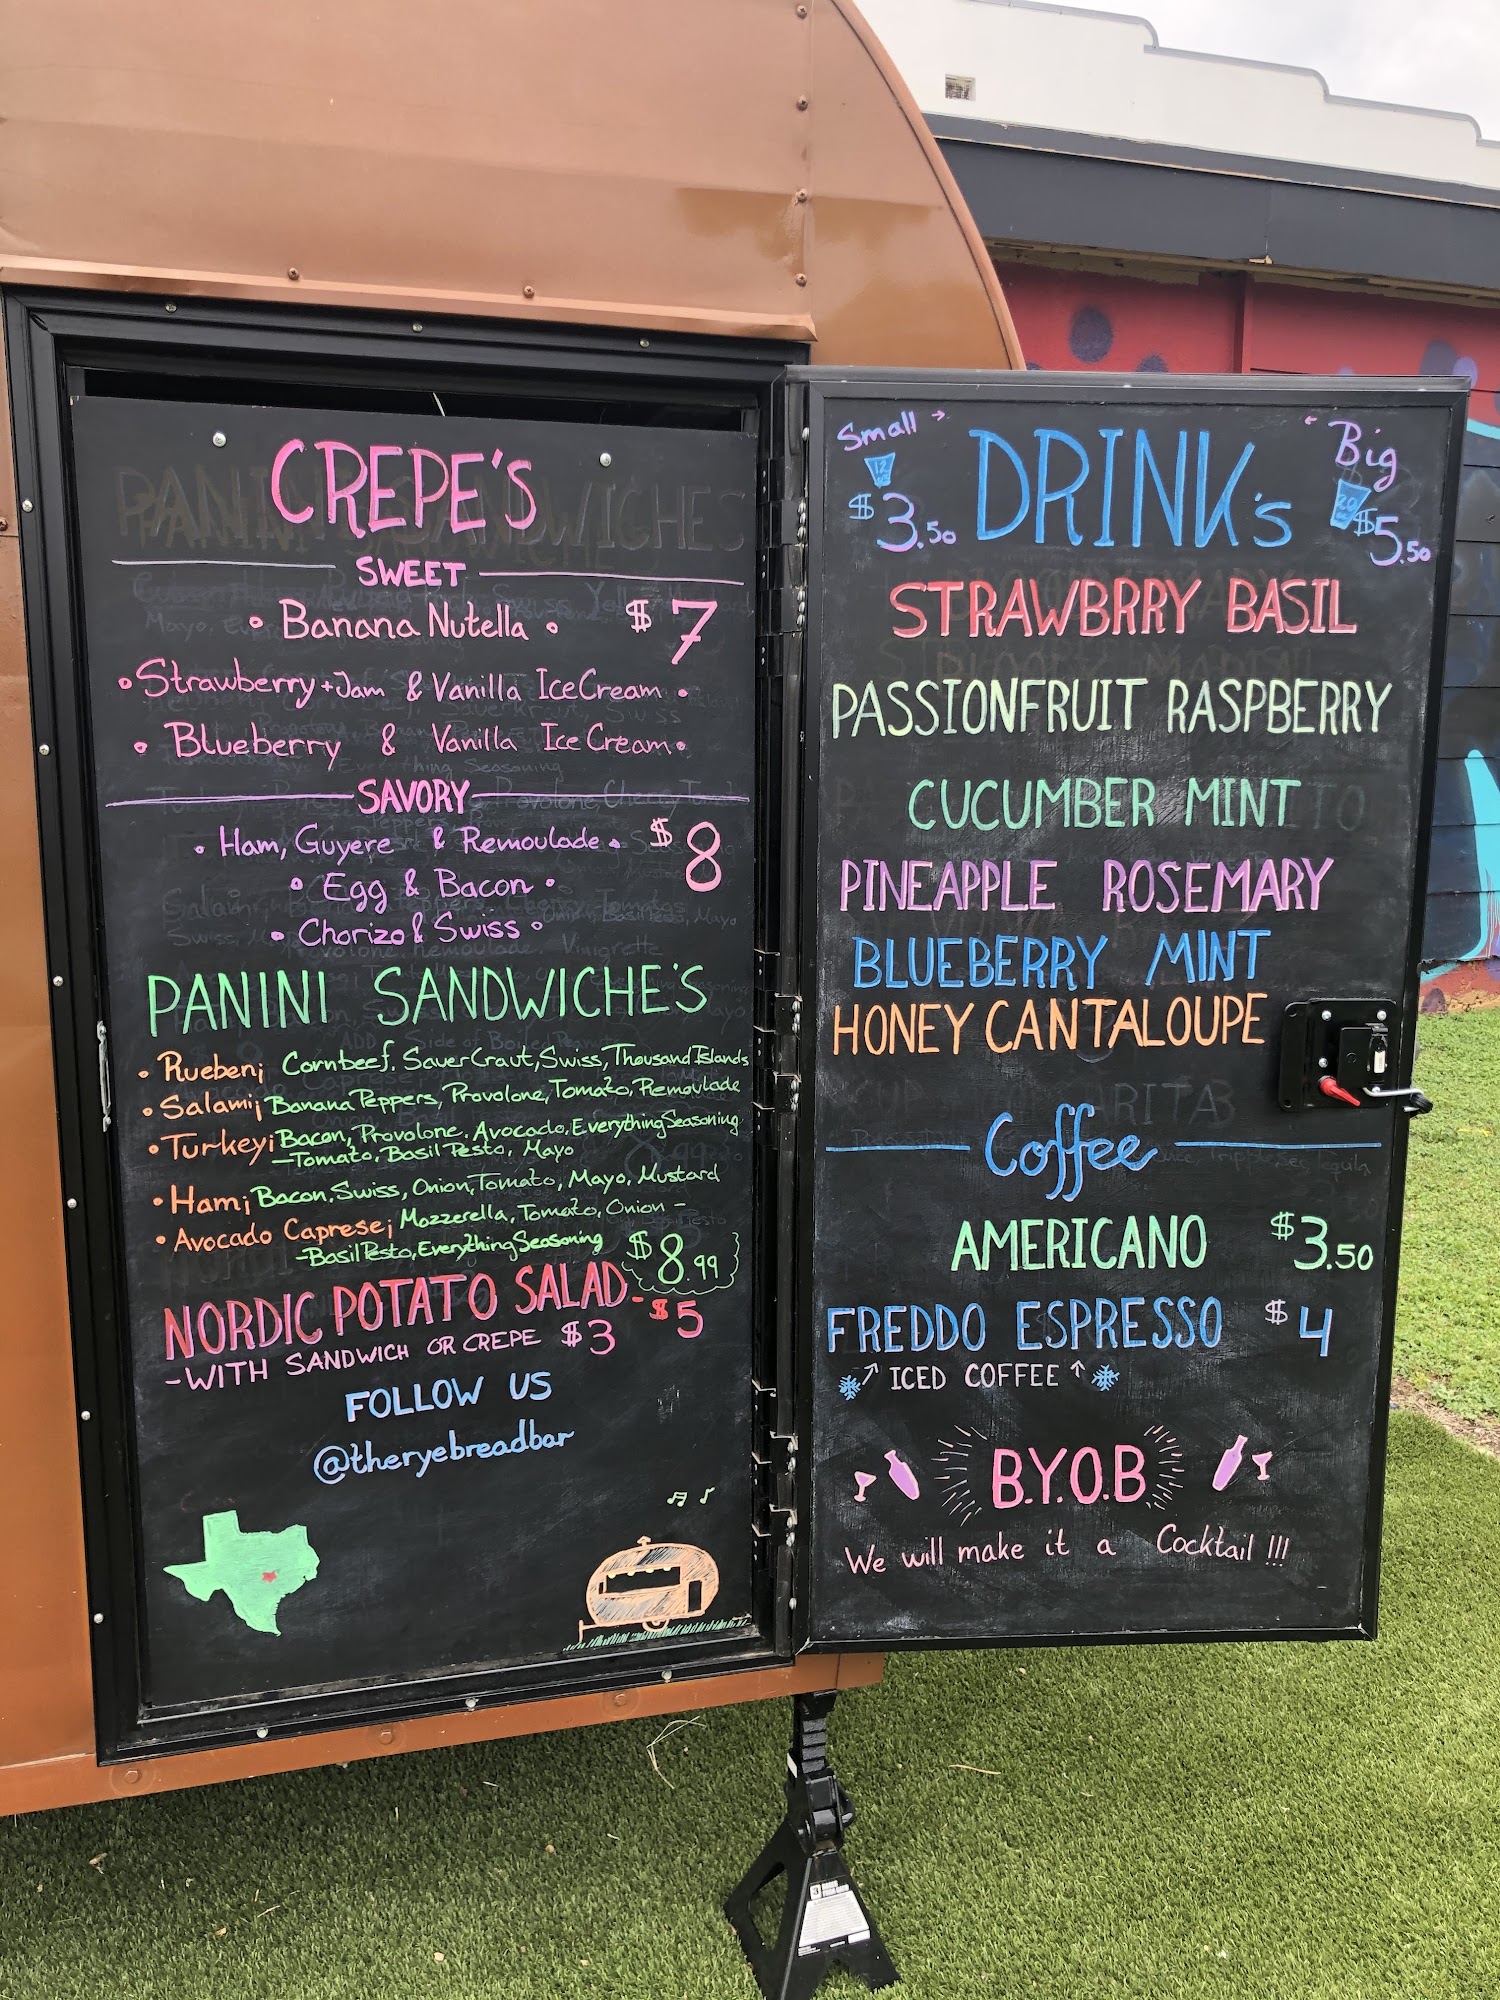 CREPE'S
SWEET
• Banana Nutella • $7
• Strawberry+Jam & Vanilla Ice Cream •
• Blueberry & Vanilla Ice Cream •
SAVORY
• Ham, Guyere & Remoulade • $8
• Egg & Bacon •
• Chorizo & Swiss •
PANINI SANDWICHE'S
• Rueben; Cornbeef, SauerCraut, Swiss, Thousand Islands
• Salami; Banana Peppers, Provolone, Tomato, Remoulade
• Turkey; Bacon, Provolone, Avocado, Everything Seasoning
—Tomato, Basil Pesto, Mayo
• Ham; Bacon, Swiss, Onion, Tomato, Mayo, Mustard
• Avocado Caprese; Mozzerella, Tomato, Onion -
-Basil Pesto, Everything Seasoning $8.99
NORDIC POTATO SALAD - $5
-WITH SANDWICH OR CREPE $3
FOLLOW US
@theryebreadbar
Small → DRINK's ← Big
12
$3.50
20
$5.50
STRAWBRRY BASIL
PASSIONFRUIT RASPBERRY
CUCUMBER MINT
PINEAPPLE ROSEMARY
BLUEBERRY MINT
HONEY CANTALOUPE
Coffee
AMERICANO $3.50
FREDDO ESPRESSO $4
↗ ICED COFFEE ↑
B.Y.O.B
We will make it a Cocktail !!!